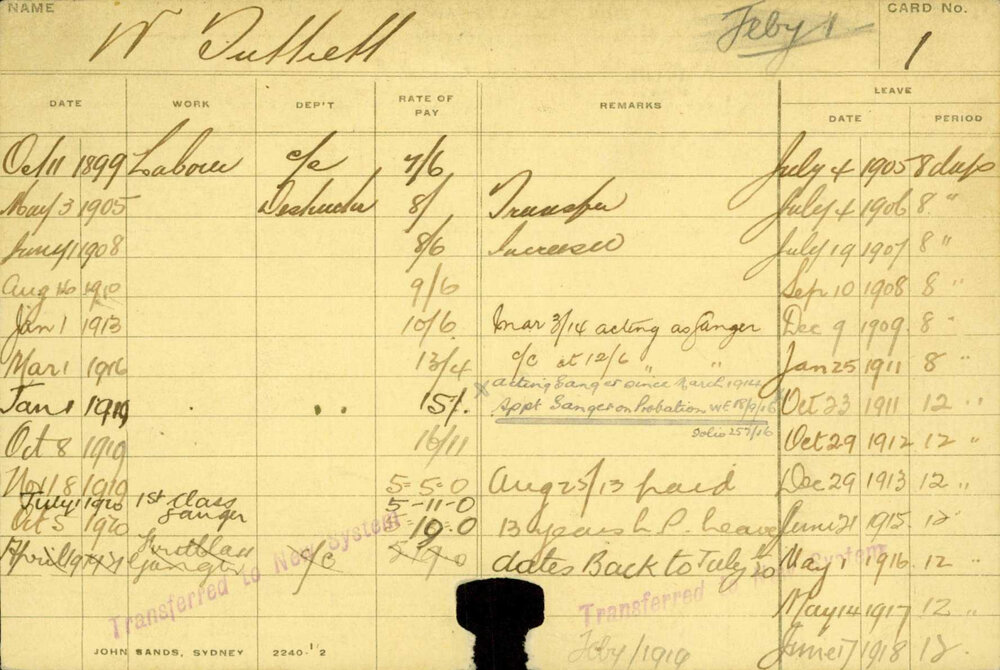 NAME
W Tuttrell
Feby 1
CARD No.
1
DATE WORK DEP'T RATE OF PAY REMARKS LEAVE
DATE PERIOD
Oct 11 1899 Labour c/c 7/6 July 4 1905 8 days
May 3 1905 Destructor 8/ Transfer July 4 1906 8 "
June 1 1908 8/6 Increased July 19 1907 8 "
Aug 16 1910 9/6 Sept 10 1908 8 "
Jan 1 1913 10/6 Mar 3/14 acting as Ganger Dec 9 1909 8 "
Mar 1 1916 13/4 c/c at 12/6 " " Jan 25 1911 8 "
x acting Ganger since March 1914
Jan 1 1919 " 15/. Appt Ganger on Probation W.E. 18/9/16 Oct 23 1911 12 "
folio 257/16
Oct 8 1919 16/11 Oct 29 1912 12 "
Nov 18 1919 5-5-0 Aug 25/13 paid Dec 29 1913 12 "
July 1 1920 1st Class Ganger 5-11-0
Oct 5 1920 5-19-0 13 years L.S. Leave June 21 1915 12 "
April 1921 Ganger c/c 5-19-0 dates Back to July 20 May 1 1916 12 "
Transferred to New System
Transferred to New System
May 14 1917 12 "
Feby/1919 June 17 1918 12
JOHN SANDS, SYDNEY 2240-1/2